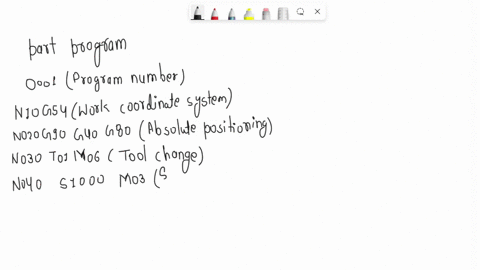 part program
0001 (Program number)
N10 G54 (Work coordinate system)
N020 G90 G40 G80 (Absolute positioning)
N030 T01 M06 (Tool change)
N040 S1000 M03 (S